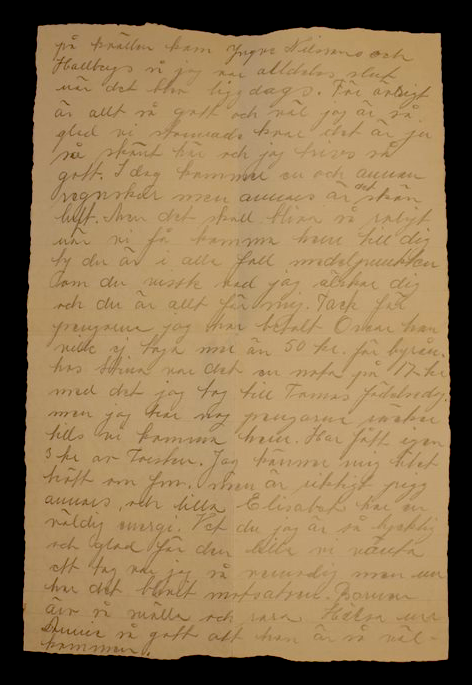 på kvällen kom Yngve Nilssons och
Hallbergs så jag var alldeles slut
när det blev liggdags. För övrigt
är allt så gott och väl jag är så
glad vi stannade kvar det är ju
så skönt här och jag trives så
gott. I dag kommer en och annan
regnskur men annars är det skön
luft. Men det skall bliva så roligt
när vi få komma hem till dig
ty du är i alla fall medelpunkten
om du visste vad jag älskar dig
och du är allt för mig. Tack för
pengarna jag har betalt Oscar han
ville ej taga mer än 50 kr. för byrån.
hos Stina var det en nota på 17 kr
med det jag tog till Tomas födelsedag.
men jag har nog pengarna räcker
tills vi komma hem. Har fått igen
3 kr av Torsten. Jag känner mig litet
trött om fm. men är riktigt pigg
annars, och lilla Elisabet har en
väldig energi. Vet du jag är så lycklig
och glad för den lilla vi vänta
ett tag var jag så men nu
har det blivit motsatsen. Barnen
äro så snälla och rara. Hälsa
så gott att han är så väl-
kommen.